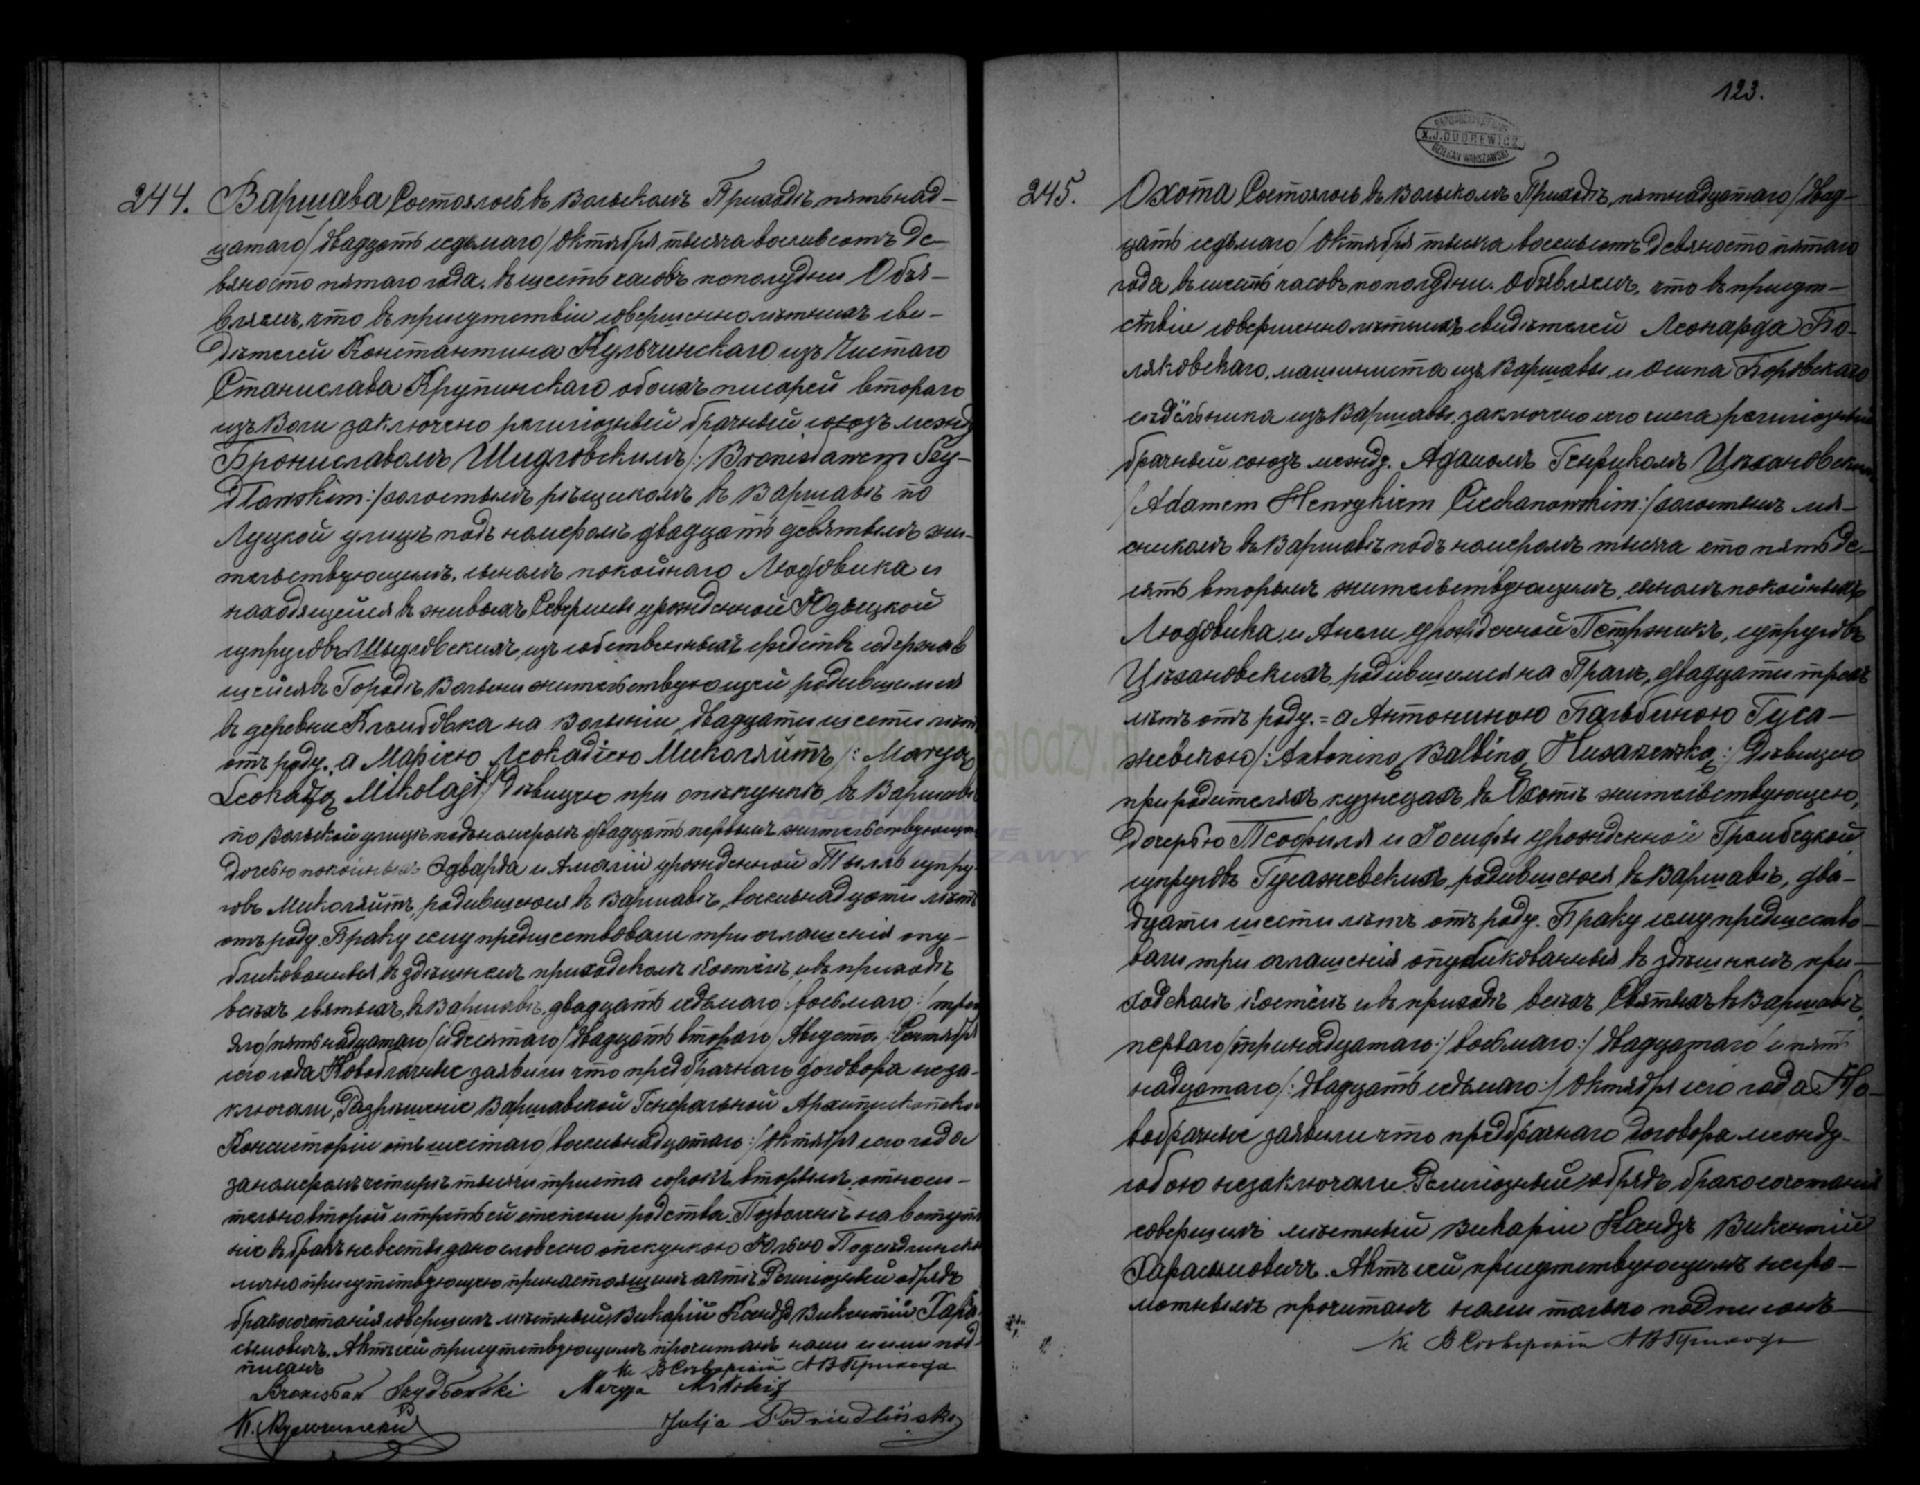 123.
X.J.DUDREWICZ
DZIEKAN WARSZAWSKI
244. Варшава Состоялось въ Вольскомъ Приходѣ пятьнад-
цатаго /двадцать седьмаго/ Октября тысяча восемьсотъ де-
вяносто пятаго года, въ шесть часовъ пополудни Объя-
вляемъ, что въ присутствіи совершеннолѣтнихъ сви-
дѣтелей Константина Кульчинскаго изъ Чистаго
Станислава Крупинскаго обоихъ писарей втораго
изъ Воли заключено религіозный брачный союзъ между
Брониславомъ Шидловскимъ /: Bronisławem Szy-
dłowskim :/ холостымъ рѣщикомъ въ Варшавѣ по
Луцкой улицѣ подъ номеромъ двадцать девятымъ жи-
тельствующимъ, сыномъ покойнаго Людовика и
находящейся въ живыхъ Северины урожденной
супруговъ Шидловскихъ, изъ собственныхъ средствъ содержав
шейся въ Городѣ жительствующей родившимся
въ деревни на Волыніи, двадцати шести лѣтъ
отъ роду, а Маріею Леокадіею Миколяйтъ /: Maryą
Leokadyą Mikolajt :/ Дѣвицею при опѣкункѣ въ Варшавѣ
по Вольской улицѣ подъ номеромъ двадцать первымъ жительствующею
дочерью покойныхъ Эдварда и Амаліи урожденной Тыль супру
говъ Миколяйтъ, родившеюся въ Варшавѣ, восемьнадцати лѣтъ
отъ роду. Браку сему предшествовали три оглашенія опу-
бликованныя въ здѣшнемъ приходскомъ костёлѣ и въ приходѣ
всѣхъ святыхъ въ Варшавѣ, двадцать седьмаго /: восьмаго :/ треть
яго /пятьнадцатаго/ и десятаго /двадцать втораго/ Августа, Сентября
сего года Новобрачные заявили что предбрачнаго договора неза-
ключали, Разрѣшеніе Варшавской Генеральной Архиепископской
Консисторіи отъ шестаго /восемьнадцатаго :/ Октября сего года
за номеромъ четыре тысячи триста сорокъ вторымъ, относи-
тельно второй и третьей степени родства. Позволеніе на вступле
ніе въ бракъ невестѣ дано словесно опекункою Юліею Подсѣдлинскою
лично присутствующею при настоящемъ актѣ Религіозный обрядъ
бракосочетанія совершилъ мѣстный Викарій Ксендзъ Викентій Хара
сымовичъ. Актъ сей присутствующимъ прочитанъ нами и ими под-
писанъ
Кс В А В Прихода
Bronisław Szydłowski Marya Mikolajt
К. Кульчинскій
Julja Podsiedlińska
245. Охота Состоялось въ Вольскомъ Приходѣ, пятнадцатаго /двад-
цать седьмаго/ Октября тысяча восемьсотъ девяносто пятаго
года въ шесть часовъ пополудни. Объявляемъ, что въ присут-
ствіи совершеннолѣтнихъ свидѣтелей Леонарда По-
ляковскаго, машиниста изъ Варшавы и Осипа Боровскаго
сѣдёльника изъ Варшавы заключено сего числа религіозный
брачный союзъ между Адамомъ Генрикомъ Цѣхановскимъ
/ Adamem Henrykiem Ciechanowskim :/ холостымъ мя-
сникомъ въ Варшавѣ подъ номеромъ тысяча сто пятьде-
сять вторымъ жительствующимъ, сыномъ покойныхъ
Людовика и Анели урожденной Петржикъ, супруговъ
Цѣхановскихъ, родившимся на Прагѣ, двадцати трехъ
лѣтъ отъ роду. = а Антониною Бальбиною Гуса-
жевскою /: Antoniną Balbiną Husarzewską :/ Дѣвицею
при родителяхъ кузнецахъ въ Охотѣ жительствующею,
дочерью Теофиля и Іосифы урожденной Грамбецкой
супруговъ Гусажевскихъ, родившеюся въ Варшавѣ, два-
дцати шести лѣтъ отъ роду. Браку сему предшество-
вали три оглашенія опубликованныя въ здѣшнемъ при-
ходскомъ костёлѣ и въ приходѣ всѣхъ Святыхъ въ Варшавѣ,
перваго /тринадцатаго :/ восьмаго :/ двадцатаго / и пят
надцатаго /: двадцать седьмаго :/ Октября сего года Но-
вобрачные заявили что предбрачнаго договора между
собою незаключали. Религіозный обрядъ бракосочетанія
совершилъ мѣстный Викарій Ксендзъ Викентій
Харасымовичъ. Актъ сей присутствующимъ негра-
мотнымъ прочитанъ нами только подписанъ
Кс В А В Прихода